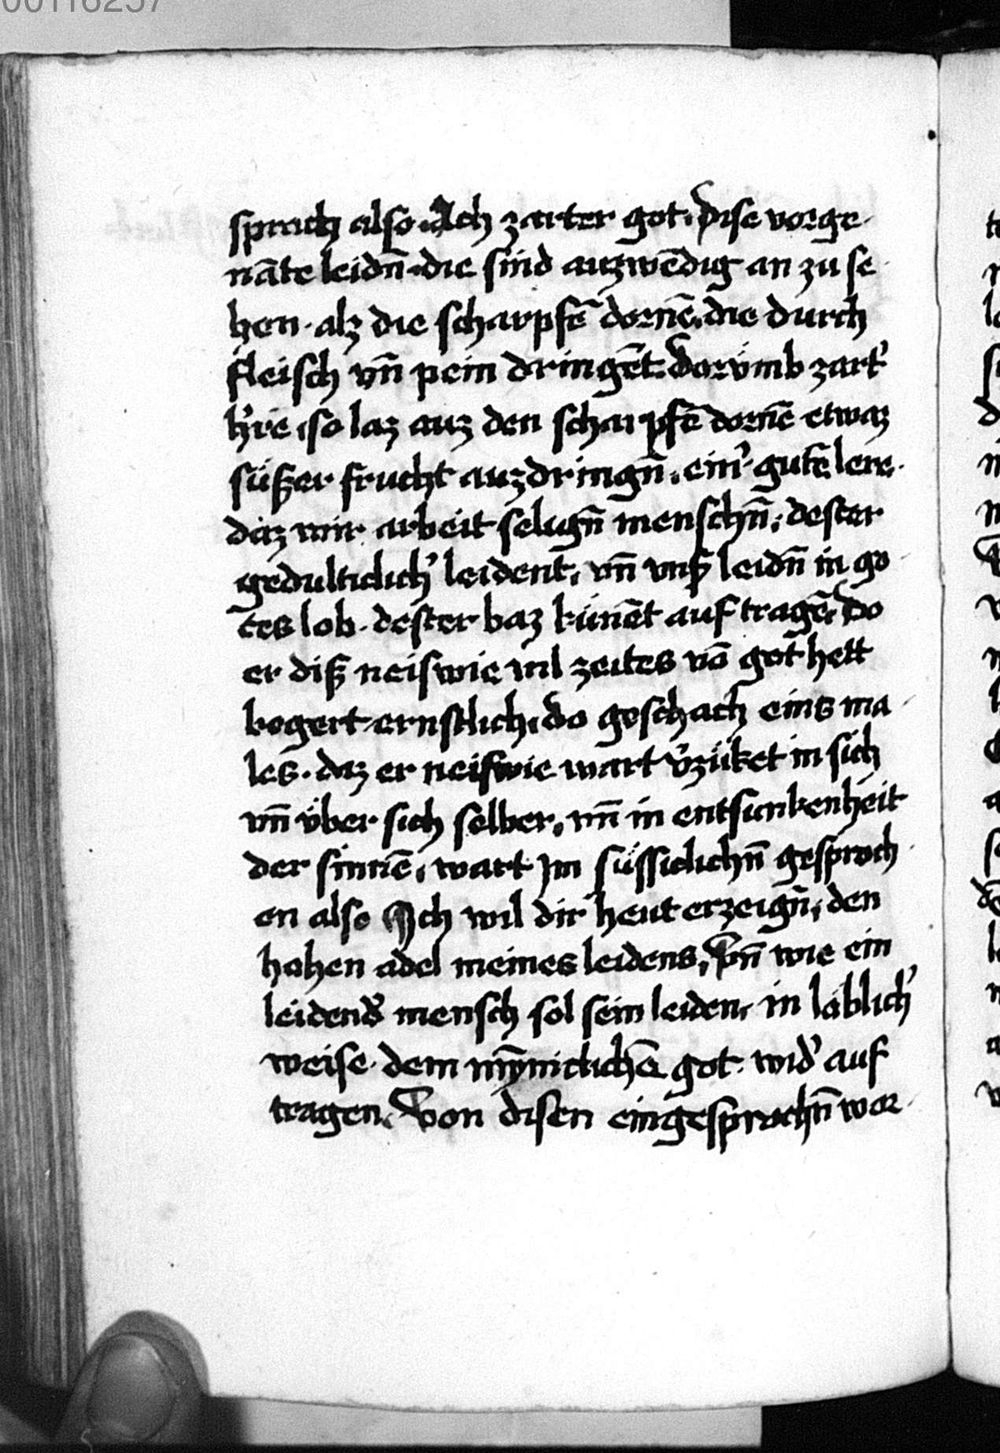 00116257
sprach also · Ach zarter got · dise vorge
nāte leidn̄ · die sind auzwēdig an zu se
hen · alz die scharpfē dornē, die durch
fleisch vn̄ pein dringēt · dorümb zart'
h're, so laz auz den scharpfē dornē etwaz
süßer frucht auzdringn̄, ein' gutē lere ·
daz wir arbeit selign̄ menschn̄, dester
gedulticlich' leident, vn̄ vnß leidn̄ in go
tes lob · dester baz künēt auf tragē, Do
er diß neiswie vil zeites vō got hett
begert ernstlich, do geschach eins ma
les · daz er neiswie wart v'züket in sich
vn̄ über sich selber, vn̄ in entsunkenheit
der sinnē, wart Im süssiclichn̄ gesproch
en also Ich wil dir heut erzeign̄, den
hohen adel meines leidens, Vn̄ wie ein
leidend' mensch sol sein leiden, in löblich'
weise · dem mȳniclichē got · wid' auf
tragen, Von disen eingesprochn̄ wor